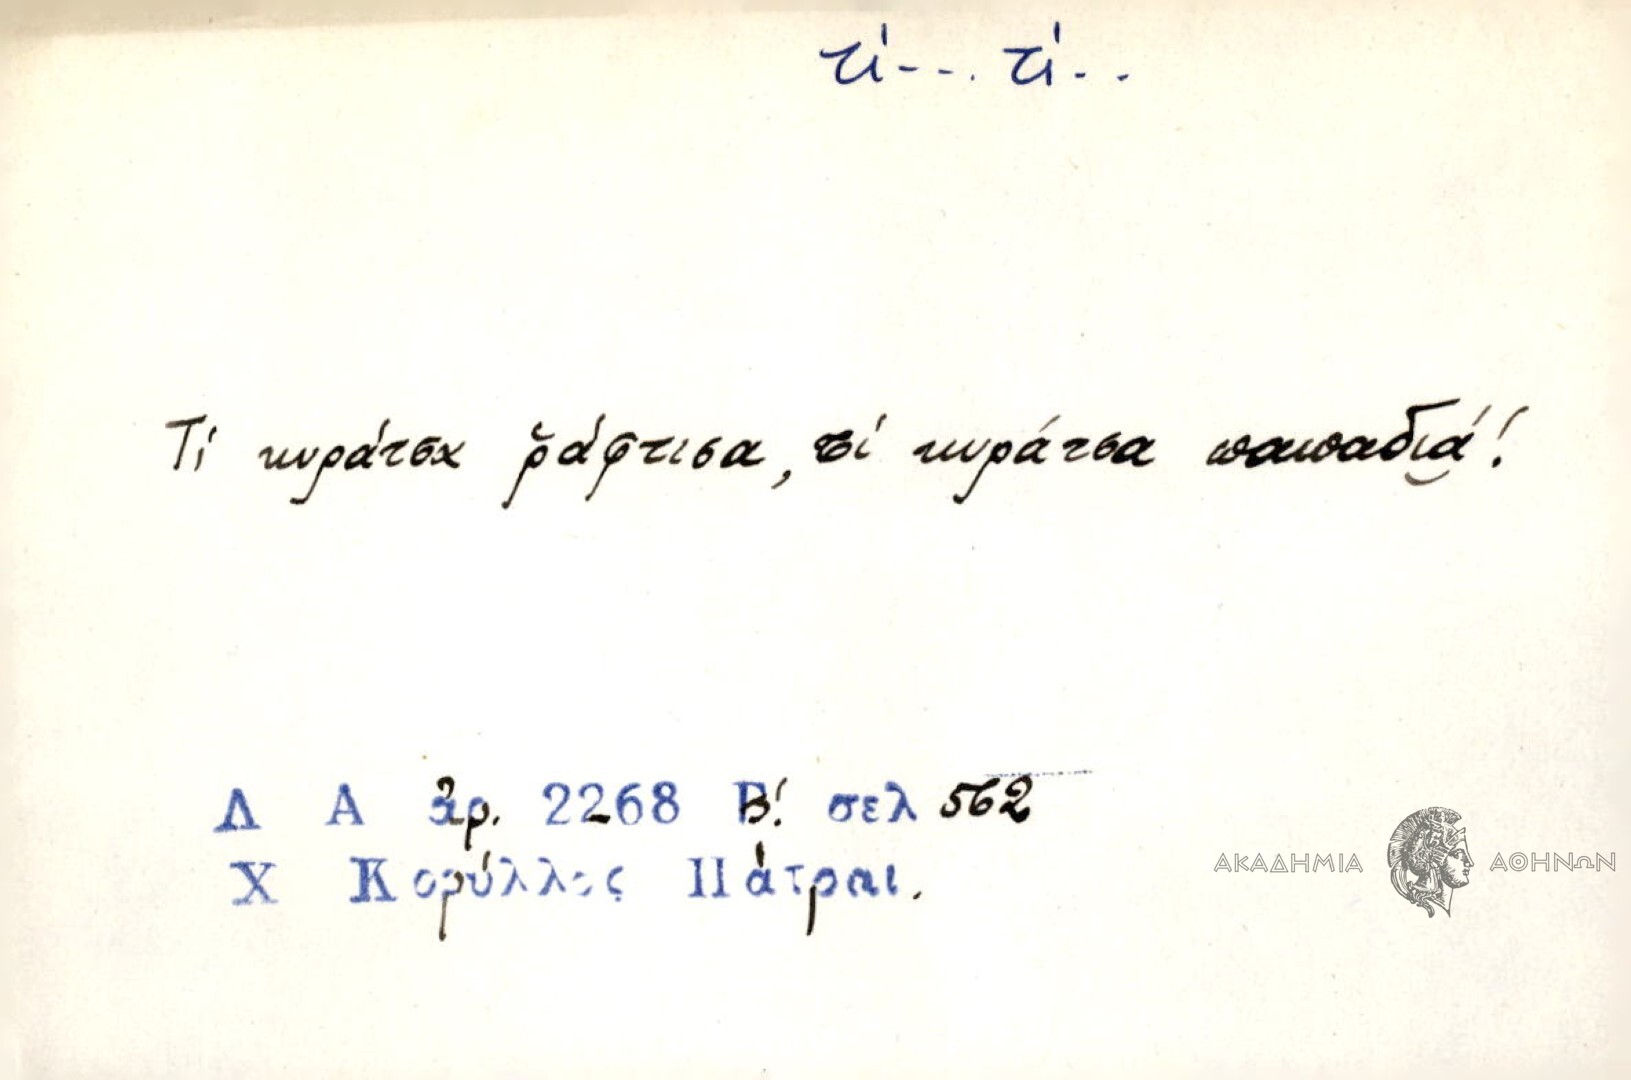 τί--. τί-.
Τί κυράτσα ῥάφτισα, τί κυράτσα παπαδιά!
Λ Α ἀρ. 2268 Β! σελ 562
Χ Κορύλλος Πάτραι.
ΑΚΑΔΗΜΙΑ ΑΘΗΝΩΝ